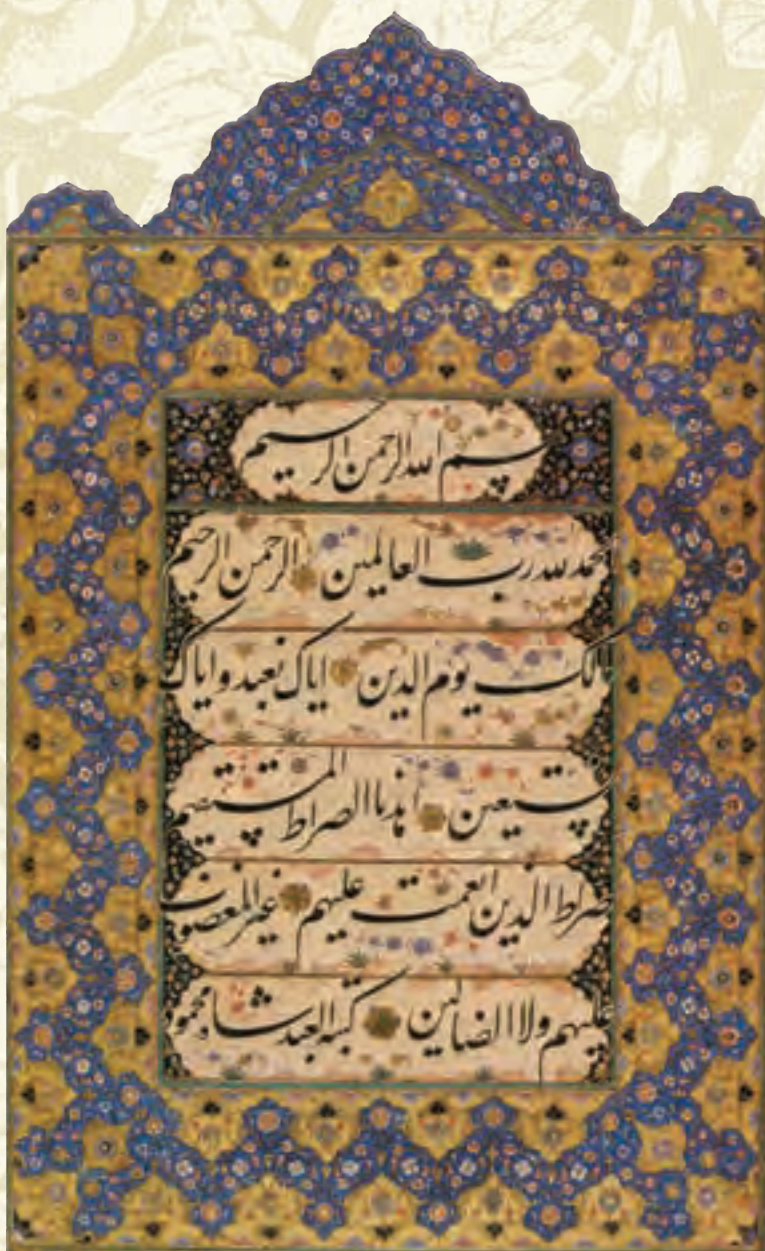 بسم الله الرحمن الرحيم
الحمد لله رب العالمين الرحمن الرحيم
مالك يوم الدين اياك نعبد و اياك
نستعين اهدنا الصراط المستقيم
صراط الذين انعمت عليهم غير المغضوب
عليهم ولا الضالين كتبه العبد شاه محمود